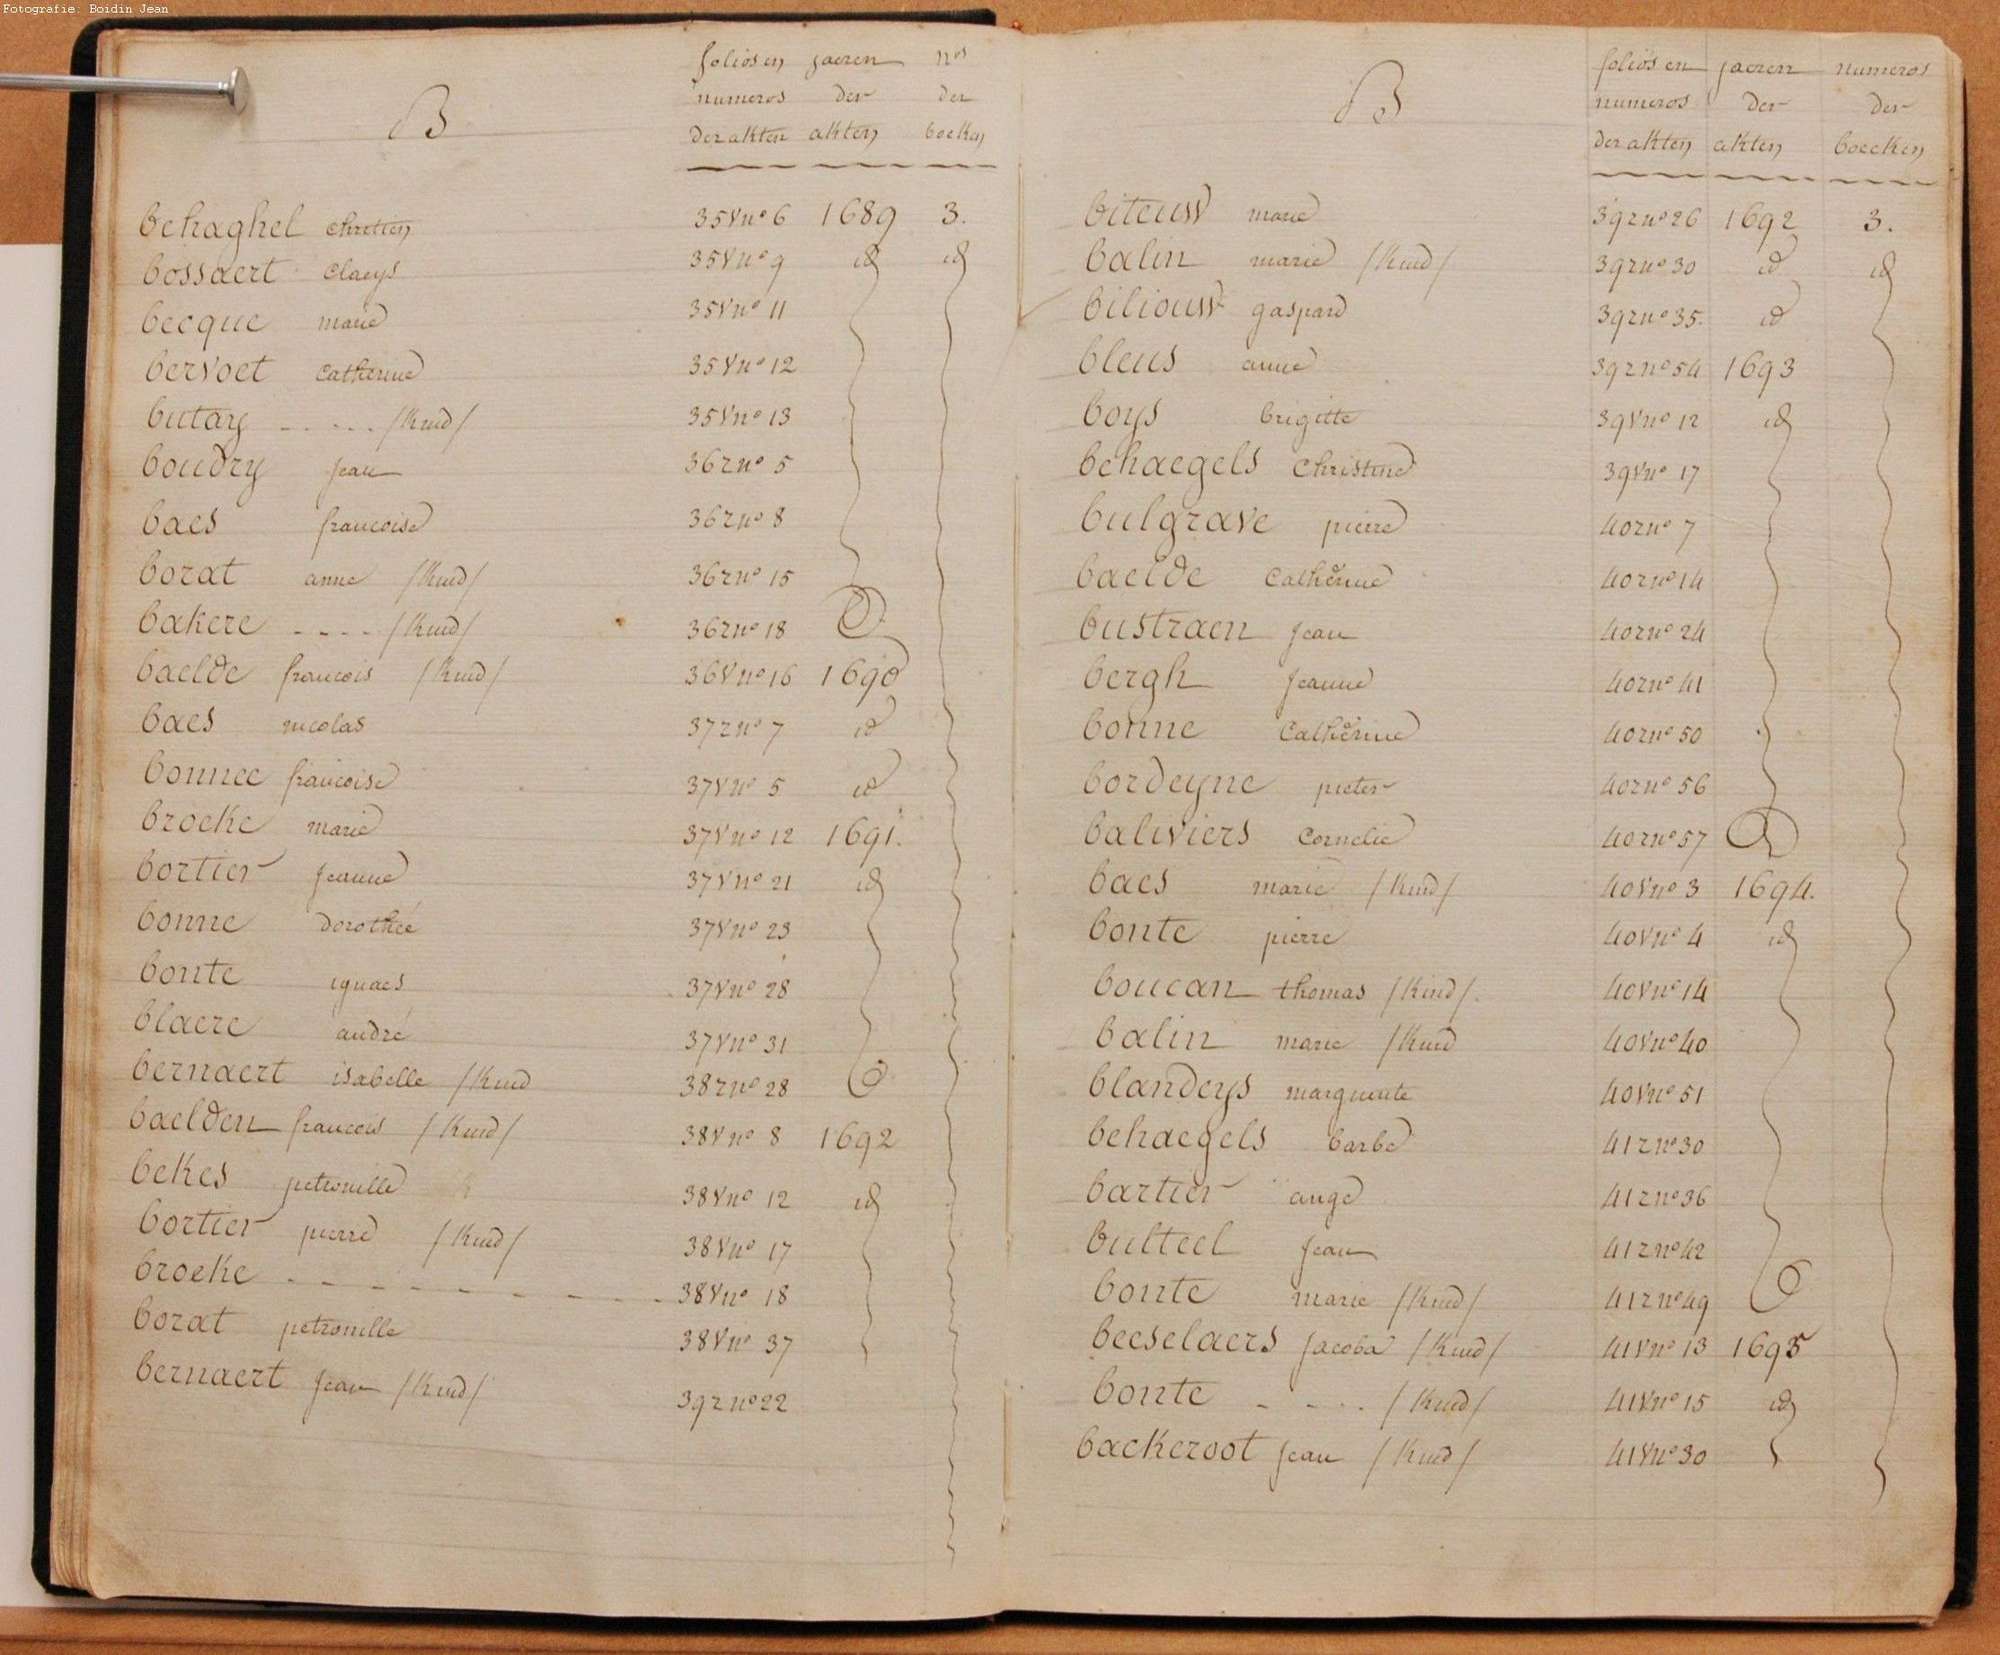 Fotografie: Boidin Jean
B
folios en jaeren nos
numeros der der
der akten akten boeken
behaghel chretien 35 v no 6 1689 3.
bossaert claeys 35 v no 9 id id
becque marie 35 v no 11
bervoet catherine 35 v no 12
butay - - - - /kind/ 35 v no 13
boudry jean 36 r no 5
baes francoise 36 r no 8
borat anne /kind/ 36 r no 15
bakere - - - - /kind/ 36 r no 18
baelde francois /kind/ 36 v no 16 1690
baes nicolas 37 r no 7 id
bonnee francoise 37 v no 5 id
broeke marie 37 v no 12 1691.
bortier jeanne 37 v no 21 id
bonne dorothée 37 v no 23
bonte ignaes 37 v no 28
blaere andré 37 v no 31
bernaert isabelle /kind 38 r no 28
baelden francois /kind/ 38 v no 8 1692
bekes petronille 38 v no 12 id
bortier pierre /kind/ 38 v no 17
broeke - - - - - - - - - 38 v no 18
borat petronille 38 v no 37
bernaert jean /kind/ 39 r no 22
B
folios en jaeren numeros
numeros der der
der akten akten boecken
biteuw marie 39 r no 26 1692 3.
balin marie /kind/ 39 r no 30 id id
biliouw gaspard 39 r no 35. id
bleus anne 39 r no 54 1693
boys brigitte 39 v no 12 id
behaegels christine 39 v no 17
bulgrave pierre 40 r no 7
baelde catherine 40 r no 14
bustraen jean 40 r no 24
bergh jeanne 40 r no 41
bonne catherine 40 r no 50
bordeyne pieter 40 r no 56
baliviers cornelie 40 r no 57
baes marie /kind/ 40 v no 3 1694.
bonte pierre 40 v no 4 id
boucan thomas /kind/. 40 v no 14
balin marie /kind 40 v no 40
blandeys marguerite 40 v no 51
behaegels barbe 41 r no 30
bartier ange 41 r no 36
bulteel jean 41 r no 42
bonte marie /kind/ 41 r no 49
beeselaers jacoba /kind/ 41 v no 13 1695
bonte - - - - /kind/ 41 v no 15 id
backeroot jean /kind/ 41 v no 30